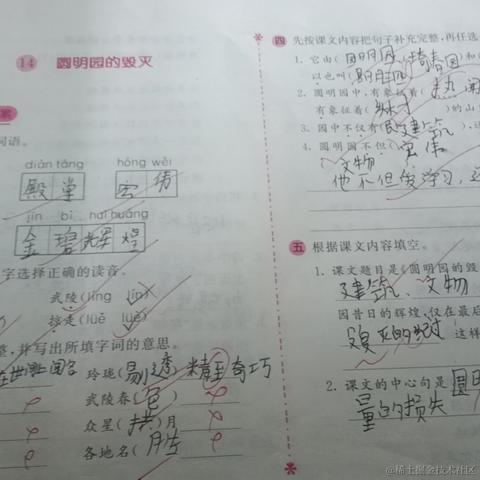 14 圆明园的毁灭
词语。
diàn táng hóng wěi
殿堂 宏伟
jīn bì huī huáng
金碧辉煌
字选择正确的读音。
武陵(líng lín)
掠走(lüě lüè)
整,并写出所填字词的意思。
玲珑(剔透) 精至奇巧
武陵春(色)
众星(拱)月
各地名(胜)
四 先按课文内容把句子补充完整,再任选
1. 它由(圆明园)(绮春园)和(
以也叫(圆明三园
2. 圆明园中,有象征着(热闹
有象征着( )的山
3. 园中不仅有(民族建筑),还
4. 圆明园不但(宏伟
文物
他不但爱学习,还
五 根据课文内容填空。
1. 课文题目是《圆明园的毁
建筑、文物
园昔日的辉煌,仅在最后
毁灭的 这样
2. 课文的中心句是 圆明
量的损失
@稀土掘金技术社区